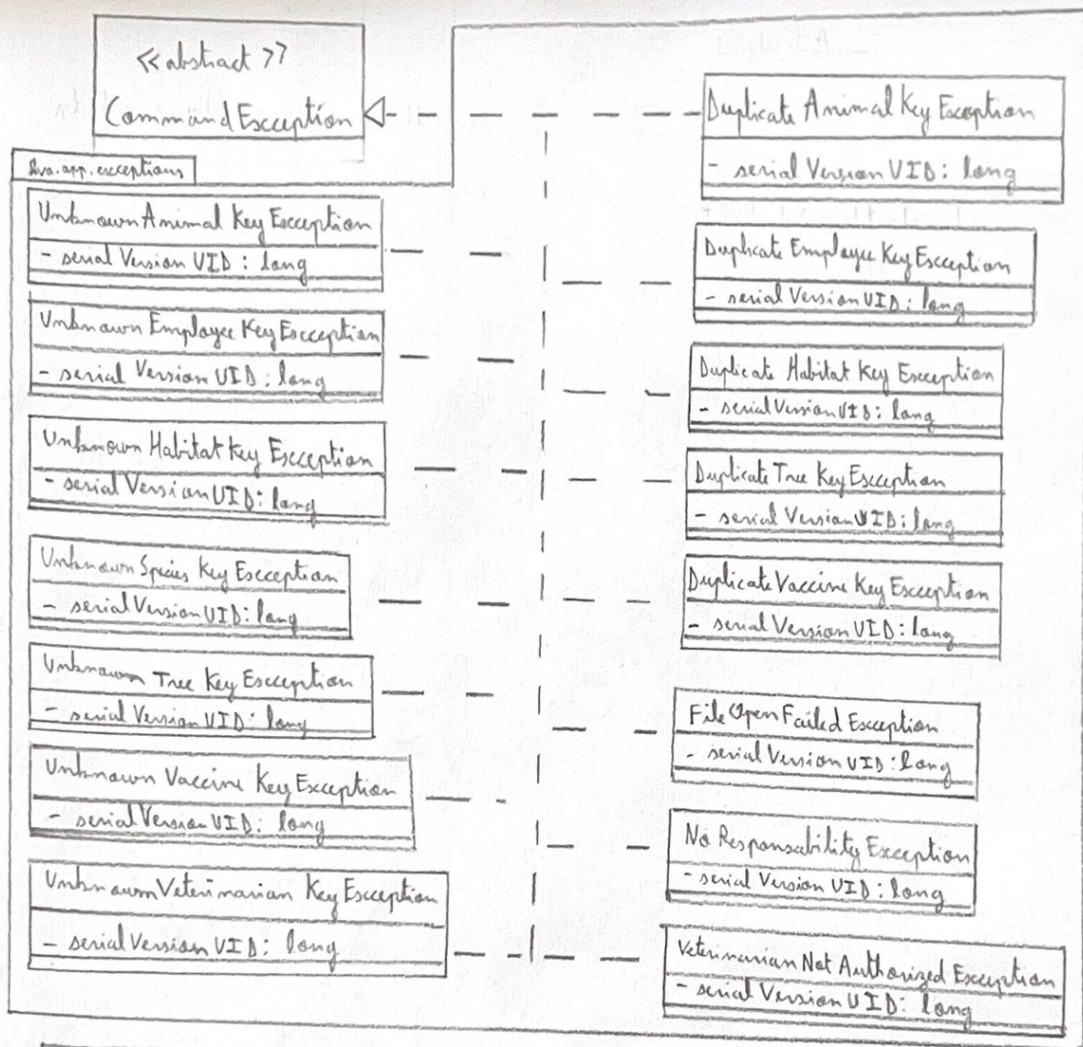 <<abstract>>
Command Exception
hva.app.exceptions
Unknown Animal Key Exception
- serial Version UID : long
Unknown Employee Key Exception
- serial Version UID : long
Unknown Habitat Key Exception
- serial Version UID : long
Unknown Species Key Exception
- serial Version UID : long
Unknown Tree Key Exception
- serial Version UID : long
Unknown Vaccine Key Exception
- serial Version UID : long
Unknown Veterinarian Key Exception
- serial Version UID : long
Duplicate Animal Key Exception
- serial Version UID : long
Duplicate Employee Key Exception
- serial Version UID : long
Duplicate Habitat Key Exception
- serial Version UID : long
Duplicate Tree Key Exception
- serial Version UID : long
Duplicate Vaccine Key Exception
- serial Version UID : long
File Open Failed Exception
- serial Version UID : long
No Responsability Exception
- serial Version UID : long
Veterinarian Not Authorized Exception
- serial Version UID : long